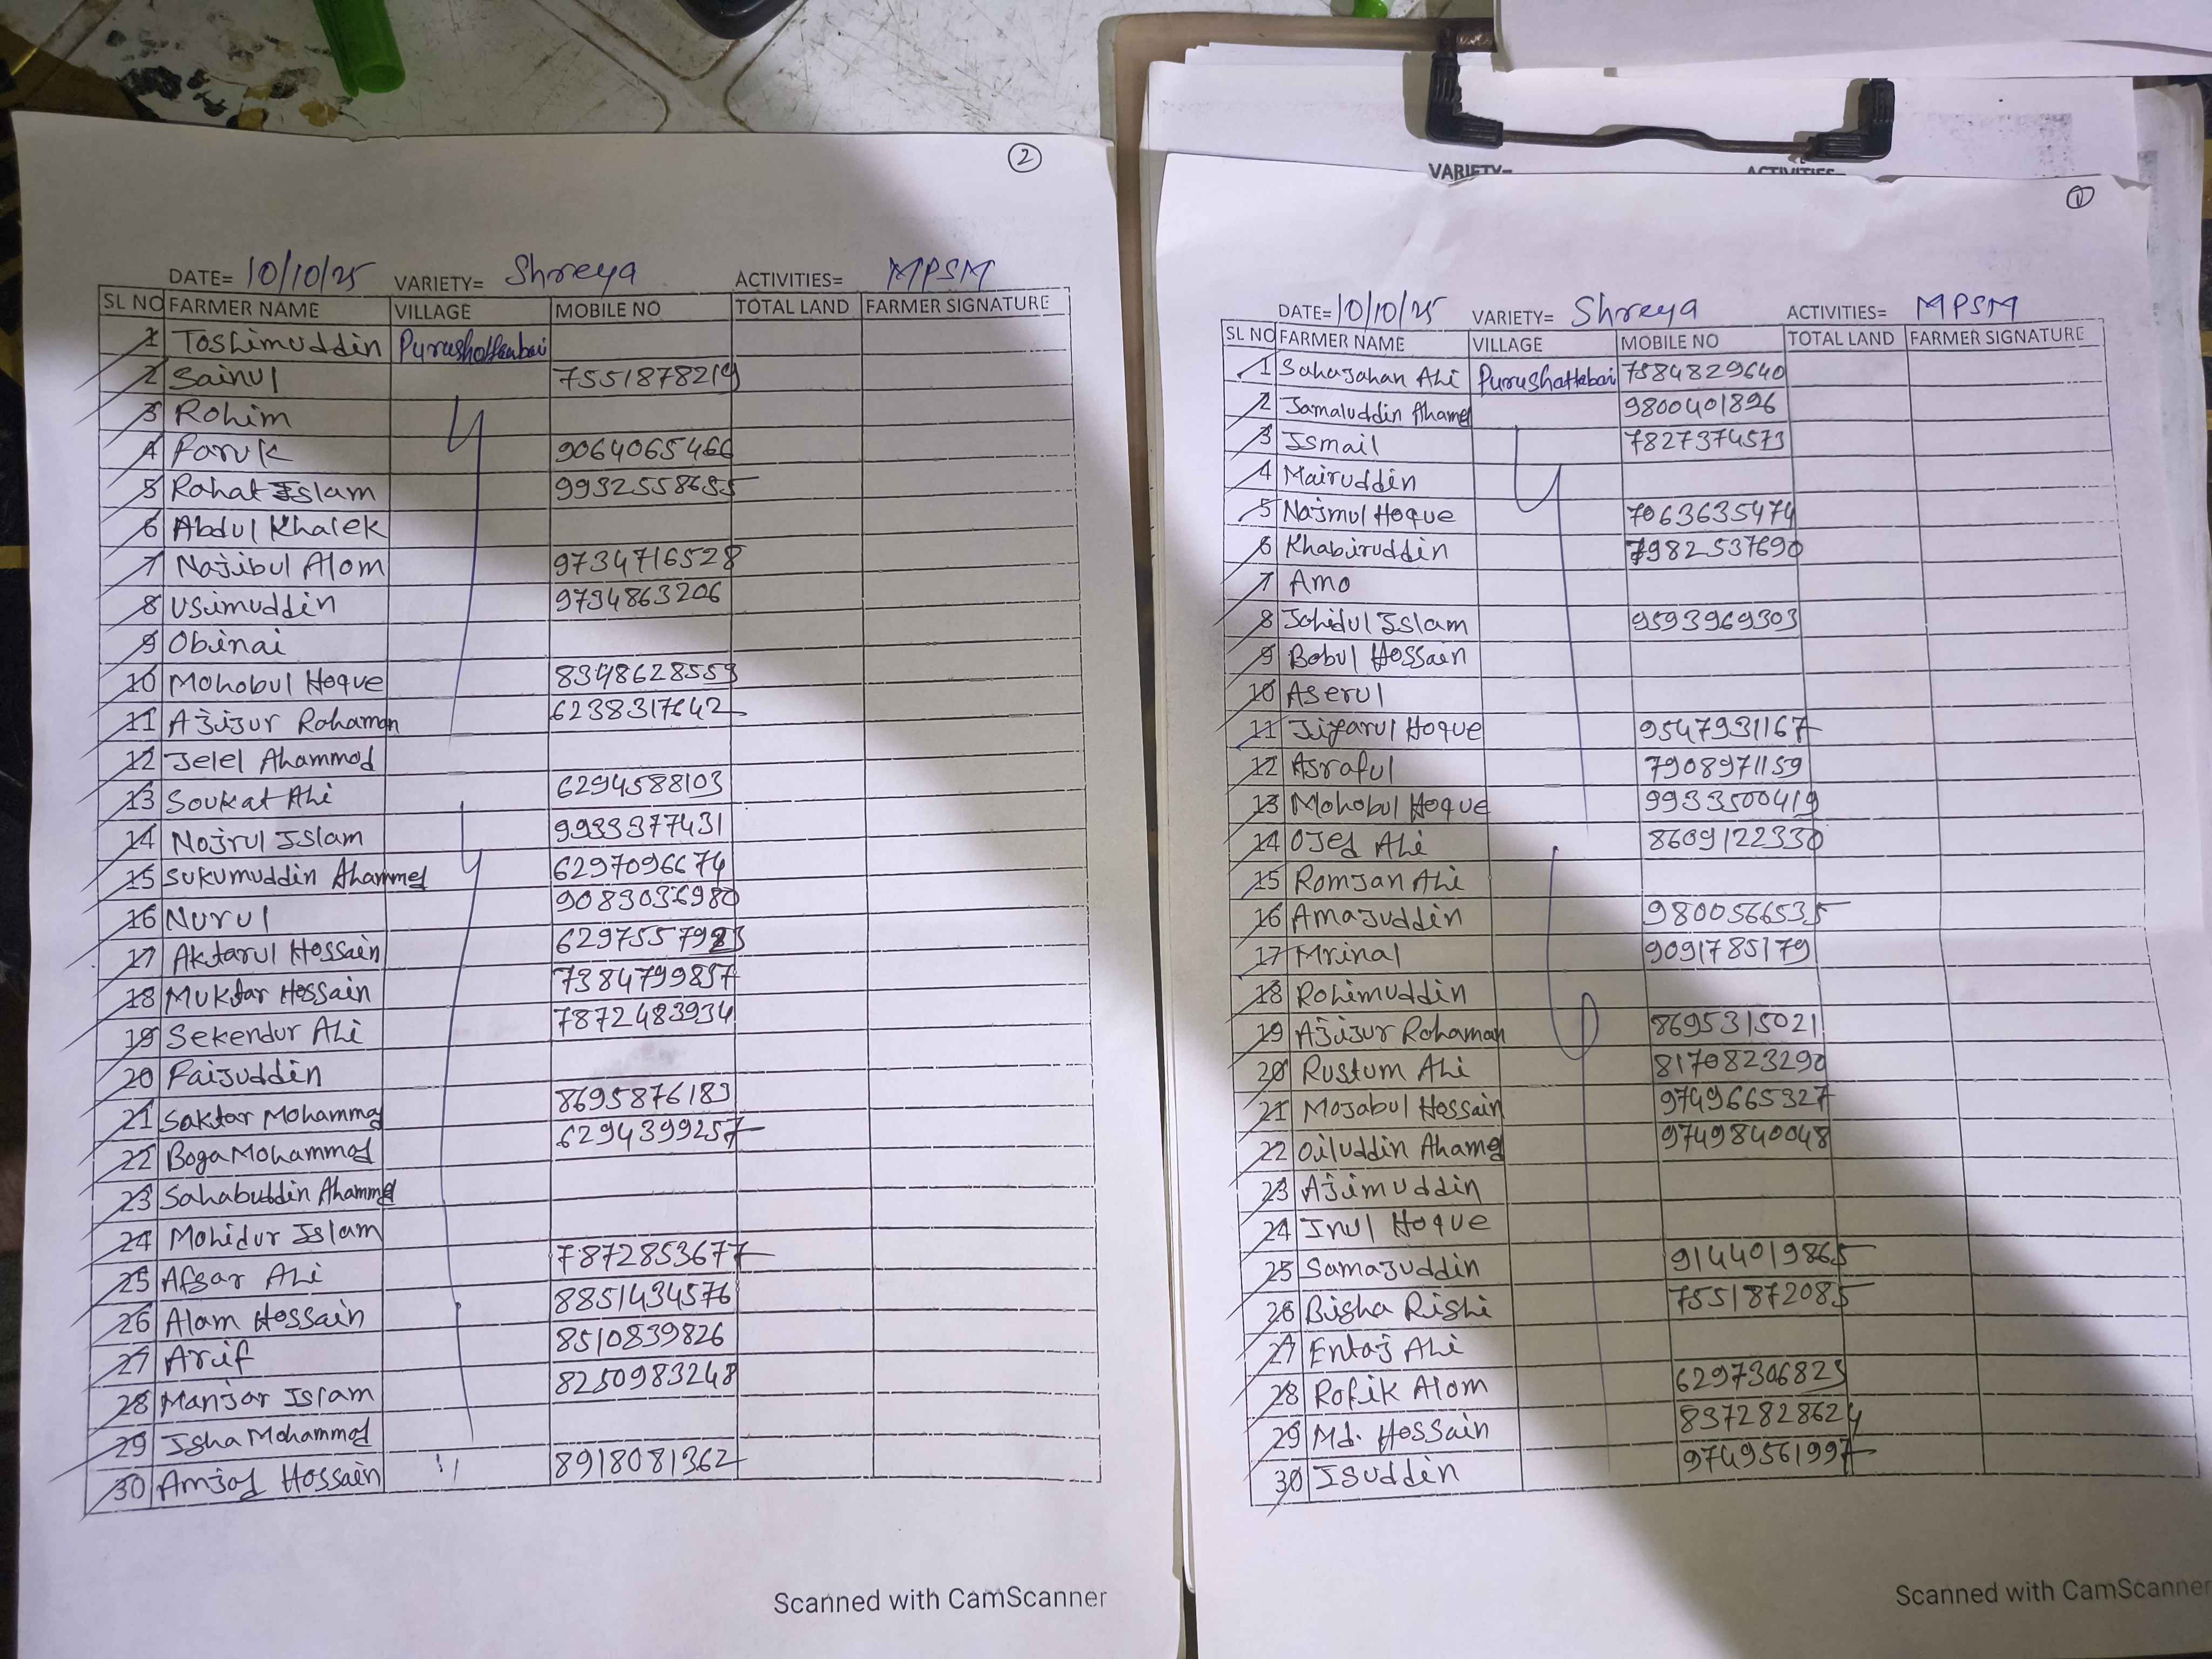 2
DATE= 10/10/25 VARIETY= Shreya ACTIVITIES= MPSM
SL NO FARMER NAME VILLAGE MOBILE NO TOTAL LAND FARMER SIGNATURE
1 Toshimuddin Purushottambari
2 Sainul 7551878219
3 Rohim
4 Faruk 9064065466
5 Rahat Islam 9932558655
6 Abdul Khalek
7 Najibul Alom 9734716528
8 Usimuddin 9734863206
9 Obinai
10 Mohobul Hoque 8348628559
11 Ajijur Rohaman 6238317642
12 Jelel Ahammod
13 Soukat Ali 6294588103
14 Nojrul Islam 9933377431
15 Sukumuddin Ahammed 6297096674
16 Nurul 9083036980
17 Aktarul Hossain
18 Muktar Hossain 7384799857
19 Sekendur Ali 7872483934
20 Faijuddin
21 Saktar Mohammod 8695876183
22 Boga Mohammod 6294399257
23 Sahabuddin Ahammed
24 Mohidur Islam
25 Afsar Ali 7872853677
26 Alam Hossain 8851434576
27 Arif 8510839826
28 Manjar Islam 8250983248
29 Isha Mohammod
30 Amjod Hossain " 8918081362
Scanned with CamScanner
VARIETY= ACTIVITIES=
1
DATE= 10/10/25 VARIETY= Shreya ACTIVITIES= MPSM
SL NO FARMER NAME VILLAGE MOBILE NO TOTAL LAND FARMER SIGNATURE
1 Sahajahan Ali Purushottabari 7584829640
2 Jamaluddin Ahamed 9800401896
3 Ismail 7827374573
4 Mairuddin
5 Najmul Hoque 7063635474
6 Khabiruddin 7982537690
7 Amo
8 Johidul Islam 9593969303
9 Bobul Hossain
10 Aserul
11 Jiyarul Hoque 9547931167
12 Asraful 7908971159
13 Mohobul Hoque 9933500419
14 Ojed Ali 8609122330
15 Romjan Ali
16 Amajuddin 9800566535
17 Mrinal 9091785179
18 Rohimuddin
19 Ajijur Rohaman 8695315021
20 Rustum Ali 8170823290
21 Mojabul Hossain 9749665327
22 Oiluddin Ahamed 9749840048
23 Ajimuddin
24 Inul Hoque
25 Samajuddin 9144019865
26 Bisha Rishi 7551872085
27 Entaj Ali
28 Rofik Alom 6297306823
29 Md. Hossain 8372828624
30 Isuddin 9749561997
Scanned with CamScanner